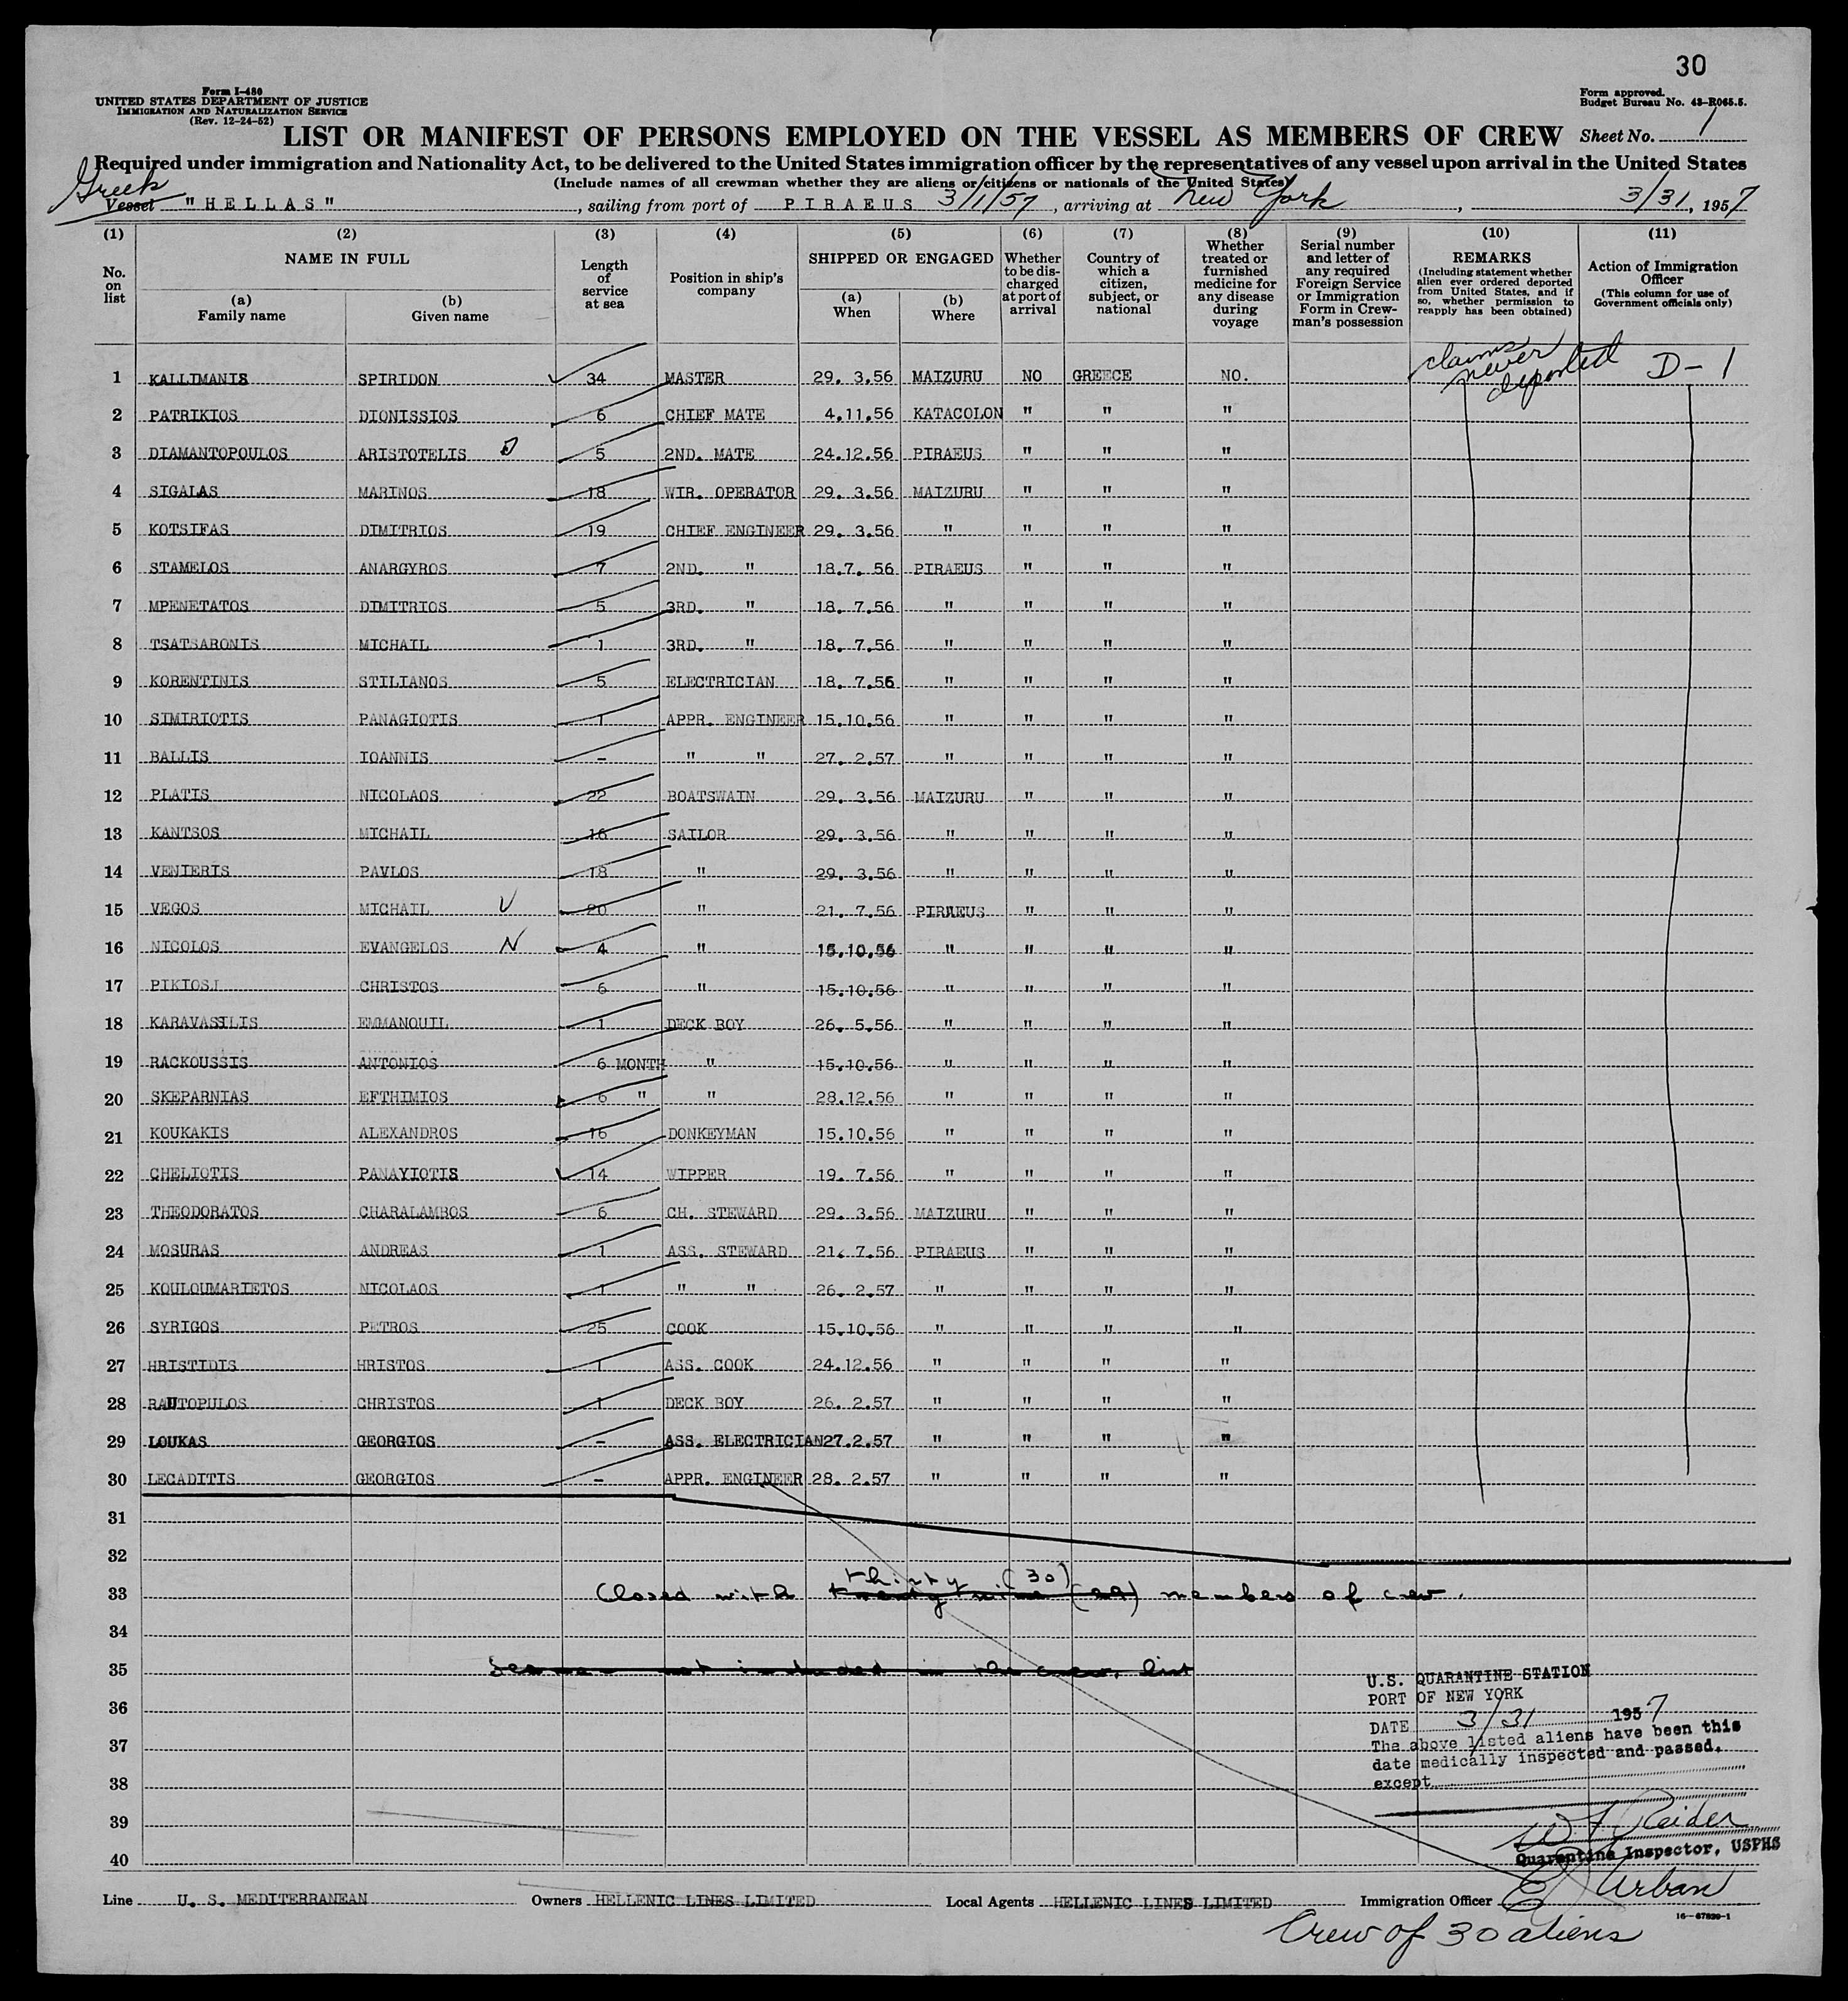 30
Form I-480
UNITED STATES DEPARTMENT OF JUSTICE
IMMIGRATION AND NATURALIZATION SERVICE
(Rev. 12-24-52)
Form approved.
Budget Bureau No. 43-R065.5.
LIST OR MANIFEST OF PERSONS EMPLOYED ON THE VESSEL AS MEMBERS OF CREW Sheet No. 1
Required under immigration and Nationality Act, to be delivered to the United States immigration officer by the representatives of any vessel upon arrival in the United States
(Include names of all crewman whether they are aliens or citizens or nationals of the United States)
Greek
Vessel "HELLAS", sailing from port of PIRAEUS 3/1/57, arriving at New York, 3/31, 1957
(1) (2) (3) (4) (5) (6) (7) (8) (9) (10) (11)
No. on list
NAME IN FULL
(a) Family name
(b) Given name
Length of service at sea
Position in ship's company
SHIPPED OR ENGAGED
(a) When
(b) Where
Whether to be discharged at port of arrival
Country of which a citizen, subject, or national
Whether treated or furnished medicine for any disease during voyage
Serial number and letter of any required Foreign Service or Immigration Form in Crewman's possession
REMARKS
(Including statement whether alien ever ordered deported from United States, and if so, whether permission to reapply has been obtained)
Action of Immigration Officer
(This column for use of Government officials only)
1 KALLIMANIS SPIRIDON 34 MASTER 29. 3.56 MAIZURU NO GREECE NO. claims never deported D-1
2 PATRIKIOS DIONISSIOS 6 CHIEF MATE 4.11.56 KATACOLON " " "
3 DIAMANTOPOULOS ARISTOTELIS D 5 2ND. MATE 24.12.56 PIRAEUS " " "
4 SIGALAS MARINOS 18 WIR. OPERATOR 29. 3.56 MAIZURU " " "
5 KOTSIFAS DIMITRIOS 19 CHIEF ENGINEER 29. 3.56 " " " "
6 STAMELOS ANARGYROS 7 2ND. " 18.7. 56 PIRAEUS " " "
7 MPENETATOS DIMITRIOS 5 3RD. " 18. 7.56 " " " "
8 TSATSARONIS MICHAIL 1 3RD. " 18. 7.56 " " " "
9 KORENTINIS STILIANOS 5 ELECTRICIAN 18. 7.56 " " " "
10 SIMIRIOTIS PANAGIOTIS 1 APPR. ENGINEER 15.10.56 " " " "
11 BALLIS IOANNIS - " " 27. 2.57 " " " "
12 PLATIS NICOLAOS 22 BOATSWAIN 29. 3.56 MAIZURU " " "
13 KANTSOS MICHAIL 16 SAILOR 29. 3.56 " " " "
14 VENIERIS PAVLOS 18 " 29. 3.56 " " " "
15 VEGOS MICHAIL V 20 " 21. 7.56 PIRAEUS " " "
16 NICOLOS EVANGELOS N 4 " 15.10.56 " " " "
17 PIKIOSI CHRISTOS 6 " 15.10.56 " " " "
18 KARAVASILIS EMMANOUIL 1 DECK BOY 26. 5.56 " " " "
19 RACKOUSSIS ANTONIOS 6 MONTH " 15.10.56 " " " "
20 SKEPARNIAS EFTHIMIOS 6 " " 28.12.56 " " " "
21 KOUKAKIS ALEXANDROS 16 DONKEYMAN 15.10.56 " " " "
22 CHELIOTIS PANAYIOTIS 14 WIPPER 19. 7.56 " " " "
23 THEODORATOS CHARALAMBOS 6 CH. STEWARD 29. 3.56 MAIZURU " " "
24 MOSURAS ANDREAS 1 ASS. STEWARD 21. 7.56 PIRAEUS " " "
25 KOULOUMARIETOS NICOLAOS 1 " " 26. 2.57 " " " "
26 SYRIGOS PETROS 25 COOK 15.10.56 " " " "
27 HRISTIDIS HRISTOS 1 ASS. COOK 24.12.56 " " " "
28 RAUTOPULOS CHRISTOS 1 DECK BOY 26. 2.57 " " " "
29 LOUKAS GEORGIOS - ASS. ELECTRICIAN 27.2.57 " " " "
30 LECADITIS GEORGIOS - APPR. ENGINEER 28. 2.57 " " " "
31
32
thirty (30)
33 Closed with twenty nine (29) members of crew.
34
35 Seaman not included in the crew list
36
37
38
39
40
U.S. QUARANTINE STATION
PORT OF NEW YORK
DATE 3/31 1957
The above listed aliens have been this
date medically inspected and passed,
except
W F Raider
Quarantine Inspector, USPHS
Line U. S. MEDITERRANEAN Owners HELLENIC LINES LIMITED Local Agents HELLENIC LINES LIMITED Immigration Officer E J Urban
16-67839-1
Crew of 30 aliens